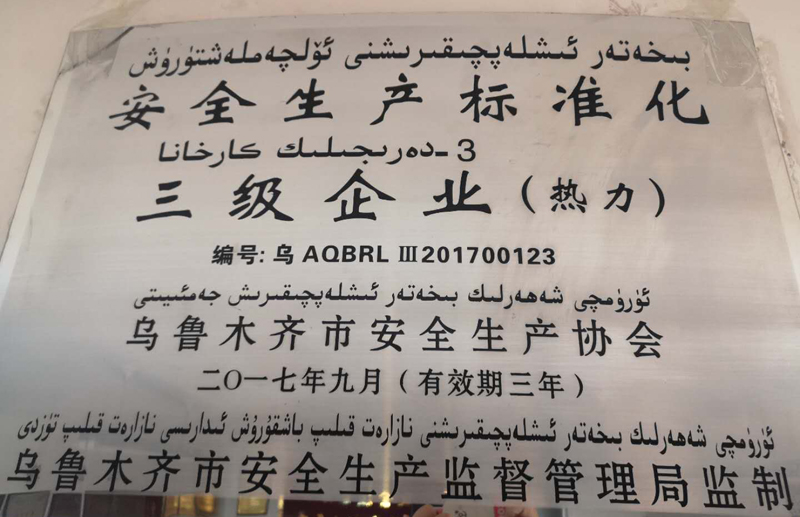 بىخەتەر ئىشلەپچىقىرىشنى ئۆلچەملەشتۈرۈش
安全生产标准化
3-دەرىجىلىك كارخانا
三级企业（热力）
编号: 乌 AQBRL Ⅲ201700123
ئۈرۈمچى شەھەرلىك بىخەتەر ئىشلەپچىقىرىش جەمئىيىتى
乌鲁木齐市安全生产协会
二〇一七年九月（有效期三年）
ئۈرۈمچى شەھەرلىك بىخەتەر ئىشلەپچىقىرىشنى نازارەت قىلىپ باشقۇرۇش ئىدارىسى نازارەت قىلىپ تۈزدى
乌鲁木齐市安全生产监督管理局监制